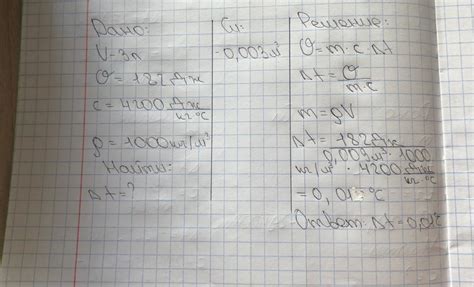 Дано:
V=3л
Q=182Дж
c=4200 Дж/кг·°C
ρ=1000кг/м³
Найти:
Δt=?
Си:
0,003м³
Решение:
Q=m·c·Δt
Δt=Q/m·c
m=ρV
Δt=182Дж
0,003м³·1000
кг/м³·4200 Дж/кг·°C
=0,01°C
Ответ: Δt=0,01°C